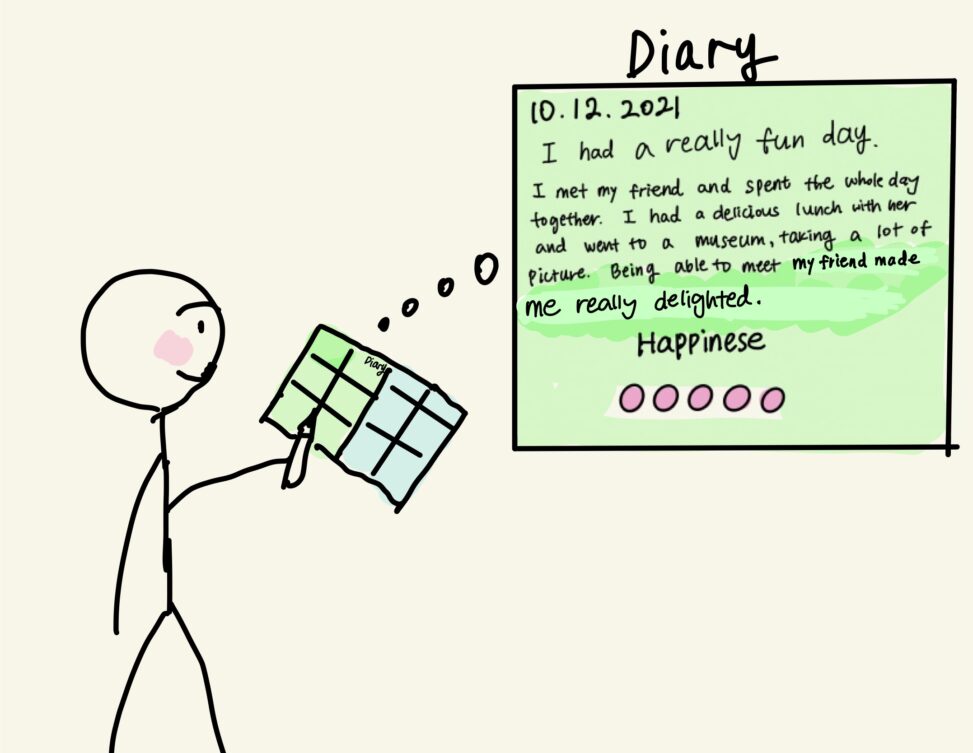 Diary
10.12.2021
I had a really fun day.
I met my friend and spent the whole day
together. I had a delicious lunch with her
and went to a museum, taking a lot of
picture. Being able to meet my friend made
me really delighted.
Happinese
Diary